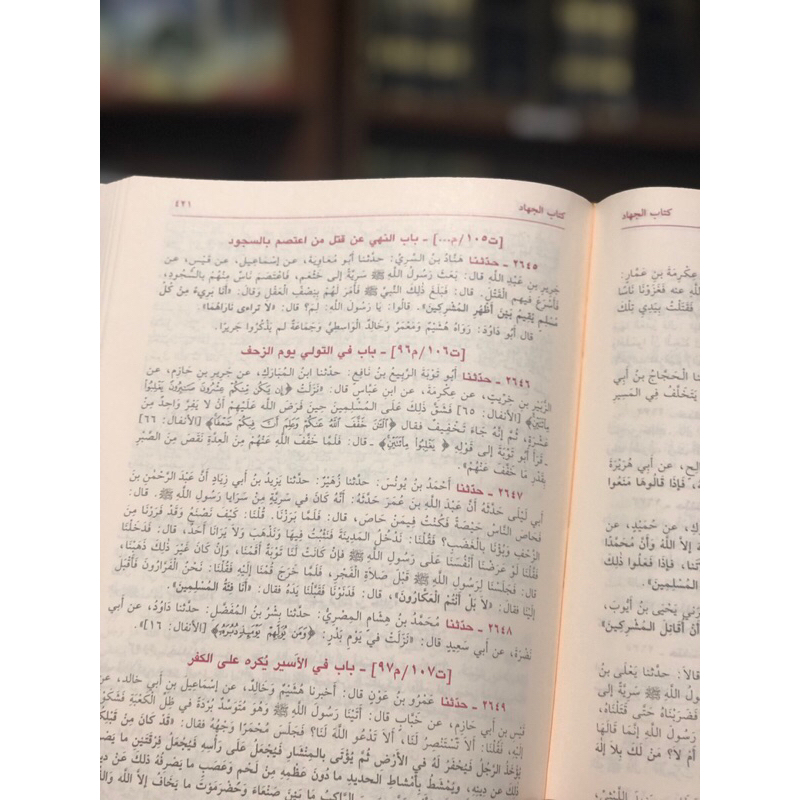 كتاب الجهاد
٤٢١
[ت١٠٥/م...] - باب النهي عن قتل من اعتصم بالسجود
٢٦٤٥ - حدثنا هَنَّادُ بنُ السَّرِيِّ: حدَّثنا أبُو مُعَاوِيَةَ، عن إسْمَاعِيلَ، عن قَيْسٍ، عن
جَرِيرِ بنِ عَبْدِ اللهِ قال: بَعَثَ رَسُولُ اللهِ ﷺ سَرِيَّةً إلَى خَثْعَمٍ، فَاعْتَصَمَ نَاسٌ مِنْهُمْ بالسُّجُودِ،
فأَسْرَعَ فيهِم الْقَتْلَ. قال: فَبَلَغَ ذَلِكَ النَّبيَّ ﷺ فأَمَرَ لَهُمْ بِنِصْفِ الْعَقْلِ وَقالَ: «أنا بريءٌ مِنْ كُلِّ
مُسْلِمٍ يُقِيمُ بَيْنَ أظْهُرِ المُشْرِكِينَ». قالُوا: يَا رَسُولَ اللهِ! لِمَ؟ قال: «لا تَرَاءَى نَارَاهُمَا».
قال أبُو دَاوُدَ: رَوَاهُ هُشَيْمٌ وَمَعْمَرٌ وَخَالِدٌ الْوَاسِطِيُّ وَجَمَاعَةٌ لم يَذْكُرُوا جَرِيرًا.
[ت١٠٦/م٩٦] - باب في التولي يوم الزحف
٢٦٤٦ - حدثنا أبُو تَوْبَةَ الرَّبِيعُ بنُ نَافِعٍ: حدَّثنا ابنُ المُبَارَكِ، عن جَرِيرِ بنِ حَازِمٍ، عن
الزُّبَيْرِ بنِ خِرِّيتٍ، عن عِكْرِمَةَ، عن ابنِ عَبَّاسٍ قال: نَزَلَتْ ﴿إِن يَكُن مِّنكُمْ عِشْرُونَ صَابِرُونَ يَغْلِبُوا
مِائَتَيْنِ﴾ [الأنفال: ٦٥] فَشَقَّ ذَلِكَ عَلَى المُسْلِمِينَ حِينَ فَرَضَ اللهُ عَلَيْهِمْ أنْ لا يَفِرَّ وَاحِدٌ مِنْ
عَشَرَةٍ، ثُمَّ إنَّهُ جَاءَ تَخْفِيفٌ فقال ﴿الْآنَ خَفَّفَ اللهُ عَنكُمْ وَعَلِمَ أَنَّ فِيكُمْ ضَعْفًا﴾ [الأنفال: ٦٦]
- قَرَأَ أبُو تَوْبَةَ إلى قَوْلِهِ ﴿يَغْلِبُوا مِائَتَيْنِ﴾ - قال: فَلَمَّا خَفَّفَ اللهُ عَنْهُمْ مِنَ الْعِدَّةِ نَقَصَ مِنَ الصَّبْرِ
بِقَدْرِ مَا خَفَّفَ عَنْهُمْ».
٢٦٤٧ - حدثنا أحْمَدُ بنُ يُونُسَ: حدَّثنا زُهَيْرٌ: حدَّثنا يَزِيدُ بنُ أبي زِيَادٍ أنَّ عَبْدَ الرَّحْمَنِ بنَ
أبي لَيْلَى حَدَّثَهُ أنَّ عَبْدَ اللهِ بنَ عُمَرَ حَدَّثَهُ: أنَّهُ كَانَ في سَرِيَّةٍ مِنْ سَرَايَا رَسُولِ اللهِ ﷺ. قال:
فَحَاصَ النَّاسُ حَيْصَةً فَكُنْتُ فِيمَنْ حَاصَ، قال: فَلَمَّا بَرَزْنَا. قُلْنَا: كَيْفَ نَصْنَعُ وَقَدْ فَرَرْنَا مِنَ
الزَّحْفِ وَبُؤْنَا بالْغَضَبِ؟ فَقُلْنَا: نَدْخُلُ المَدِينَةَ فَنَثْبُتُ فِيهَا وَنَذْهَبُ وَلا يَرَانَا أحَدٌ، قال: فَدَخَلْنَا
فَقُلْنَا لَوْ عَرَضْنَا أنْفُسَنَا عَلَى رَسُولِ اللهِ ﷺ فإنْ كَانَتْ لَنَا تَوْبَةٌ أقَمْنَا، وَإنْ كَانَ غَيْرَ ذَلِكَ ذَهَبْنَا،
قال: فَجَلَسْنَا لِرَسُولِ اللهِ ﷺ قَبْلَ صَلَاةِ الْفَجْرِ، فَلَمَّا خَرَجَ قُمْنَا إلَيْهِ فَقُلْنَا: نَحْنُ الْفَرَّارُونَ فَأقْبَلَ
إلَيْنَا فقال: «لا بَلْ أنْتُمْ الْعَكَّارُونَ»، قال: فَدَنَوْنَا فَقَبَّلْنَا يَدَهُ فقال: «أنَا فِئَةُ المُسْلِمِينَ».
٢٦٤٨ - حدثنا مُحَمَّدُ بنُ هِشَامٍ المِصْرِيُّ: حدَّثنا بِشْرُ بنُ المُفَضَّلِ: حدَّثنا دَاوُدُ، عن أبي
نَضْرَةَ، عن أبي سَعِيدٍ قال: «نَزَلَتْ في يَوْمِ بَدْرٍ: ﴿وَمَن يُوَلِّهِمْ يَوْمَئِذٍ دُبُرَهُ﴾ [الأنفال: ١٦]».
[ت١٠٧/م٩٧] - باب في الأسير يُكره على الكفر
٢٦٤٩ - حدثنا عَمْرُو بنُ عَوْنٍ قال: أخبرنا هُشَيْمٌ وَخَالِدٌ، عن إسْمَاعِيلَ، عن
قَيْسِ بنِ أبي حَازِمٍ، عن خَبَّابٍ قال: أتَيْنَا رَسُولَ اللهِ ﷺ وَهُوَ مُتَوَسِّدٌ بُرْدَةً في ظِلِّ الْكَعْبَةِ
إلَيْهِ، فَقُلْنَا: ألَا تَسْتَنْصِرُ لَنَا، ألَا تَدْعُو اللهَ لَنَا؟ فَجَلَسَ مُحْمَرًّا وَجْهُهُ فقال: «قَدْ كَانَ مَنْ
يُؤْخَذُ الرَّجُلُ فَيُحْفَرُ لَهُ في الأرْضِ ثُمَّ يُؤْتَى بالمِنْشَارِ فَيُجْعَلُ عَلَى رَأْسِهِ فَيُجْعَلُ فِرْقَتَيْنِ
ذَلِكَ عن دِينِهِ، وَيُمْشَطُ بأمْشَاطِ الحديدِ مَا دُونَ عَظْمِهِ مِنْ لَحْمٍ وَعَصَبٍ مَا يَصْرِفُهُ ذَلِكَ عن
الرَّاكِبُ مَا بَيْنَ صَنْعَاءَ وَحَضْرَمَوْتَ مَا يَخَافُ إلَّا اللهَ
كتاب الجهاد
عِكْرِمَةُ بنُ عَمَّارٍ:
اللهُ عنه فَغَزَوْنَا نَاسًا
فَقَتَلْتُ بِيَدِي تِلْكَ
الْحَجَّاجُ بنُ أبي
يَتَخَلَّفُ في المَسِيرِ
عن أبي هُرَيْرَةَ
فَإذَا قالُوهَا مَنَعُوا
عن حُمَيْدٍ، عن
إلَّا اللهُ وَأنَّ مُحَمَّدًا
فَإذَا فَعَلُوا ذَلِكَ
المُسْلِمِينَ».
يَحْيَى بنُ أيُّوبَ،
أنْ أُقَاتِلَ المُشْرِكِينَ»
قالَا: حدَّثنا يَعْلَى بنُ
اللهِ ﷺ سَرِيَّةً إلَى
فَضَرَبْنَاهُ حَتَّى قَتَلْنَاهُ،
رَسُولَ اللهِ إنَّمَا قَالَهَا
أمْ لا؟ مَنْ لَكَ بِلَا إلَهَ